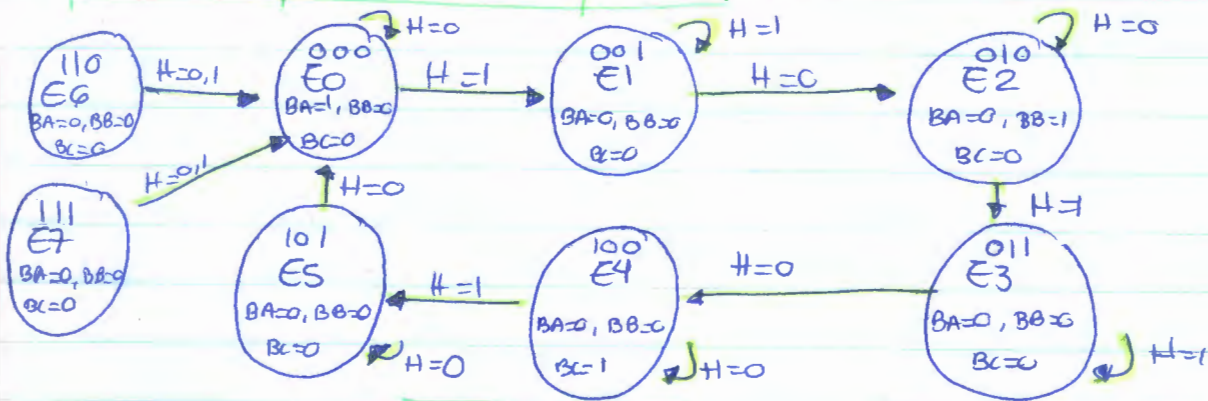 110
E6
BA=0, BB=0
BC=0
H=0,1
000
E0
BA=1, BB=0
BC=0
H=0
H=1
001
E1
BA=0, BB=0
BC=0
H=1
H=0
010
E2
BA=0, BB=1
BC=0
H=0
H=1
111
E7
BA=0, BB=0
BC=0
H=0,1
H=0
101
E5
BA=0, BB=0
BC=0
H=0
H=1
100
E4
BA=0, BB=0
BC=1
H=0
H=0
011
E3
BA=0, BB=0
BC=0
H=1